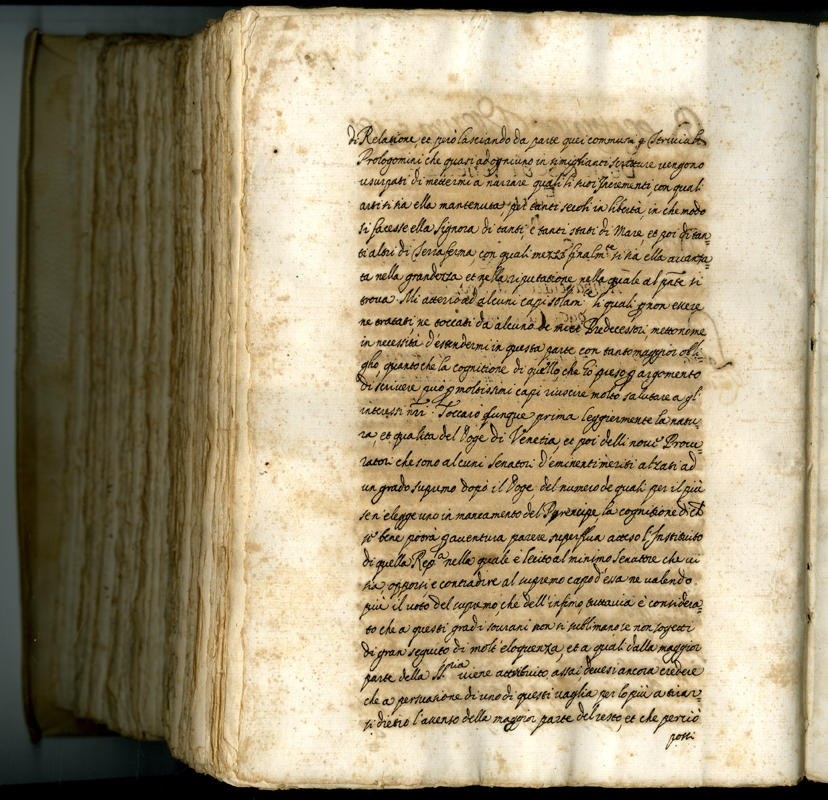 di Relatione, et però lasciando da parte quei communi
Prologomini che quasi ad ogniuno in simiglianti scritture vengono
usurpati di mettermi à narrare quali li suoi Incrementi con quali
arti si ha ella mantenuta per tanti secoli in libertà, in che modo
si facesse ella Signora di tanti e tanti stati di Mare, et poi di tan-
ti altri di Terraferma con quali mezzi finalm.te si ha ella avanza-
ta nella grandezza et nella riputatione nella quale al pnte si
trova. Mi atterrò ad alcuni capi solam.te li quali p non essere
ne trattati, ne toccati da alcuno de miei Predecessori mettonome
in necessità d'estendermi in questa parte con tanto maggior obli-
gho, quanto che la cognitione di quello, che Io preso p argomento
di scrivere può p moltissimi capi riuscire molto salutare a gl'
interessi nri. Toccarò dunque prima leggiermente la natu-
ra, et qualità del Doge di Venetia, et poi delli nove Procu-
ratori che sono alcuni senatori d'eminenti meriti alzati ad
un grado supremo dopò il Doge del numero de quali per il più
se n'elegge uno in mancamento del Prencipe, la cognitione di
se bene potrà p aventura parere superflua atteso l'Instituto
di quella Rep.ca nella quale è lecito al minimo Senatore che vi
sia, opporsi e contradire al supremo capo d'essa ne valendo
più il voto del supremo, che dell'infimo, tuttavia è considera-
to che a questi gradi sourani non si sublimano se non sogetti
di gran seguito di molt'eloquenza, et a quali dalla maggior
parte della viene attribuito assai devesi ancora credere
che a persuasione di uno di questi vaglia per lo più a tirar
si dietro l'assenso della maggior parte del resto, et che perciò
posti